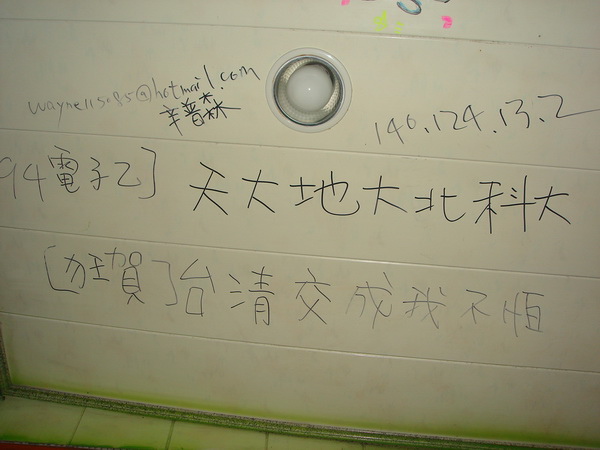 wayne115085@hotmail.com
辛普森
140.124.13.2
94電子乙]
天大地大北科大
[狂賀]台清交成我不怕